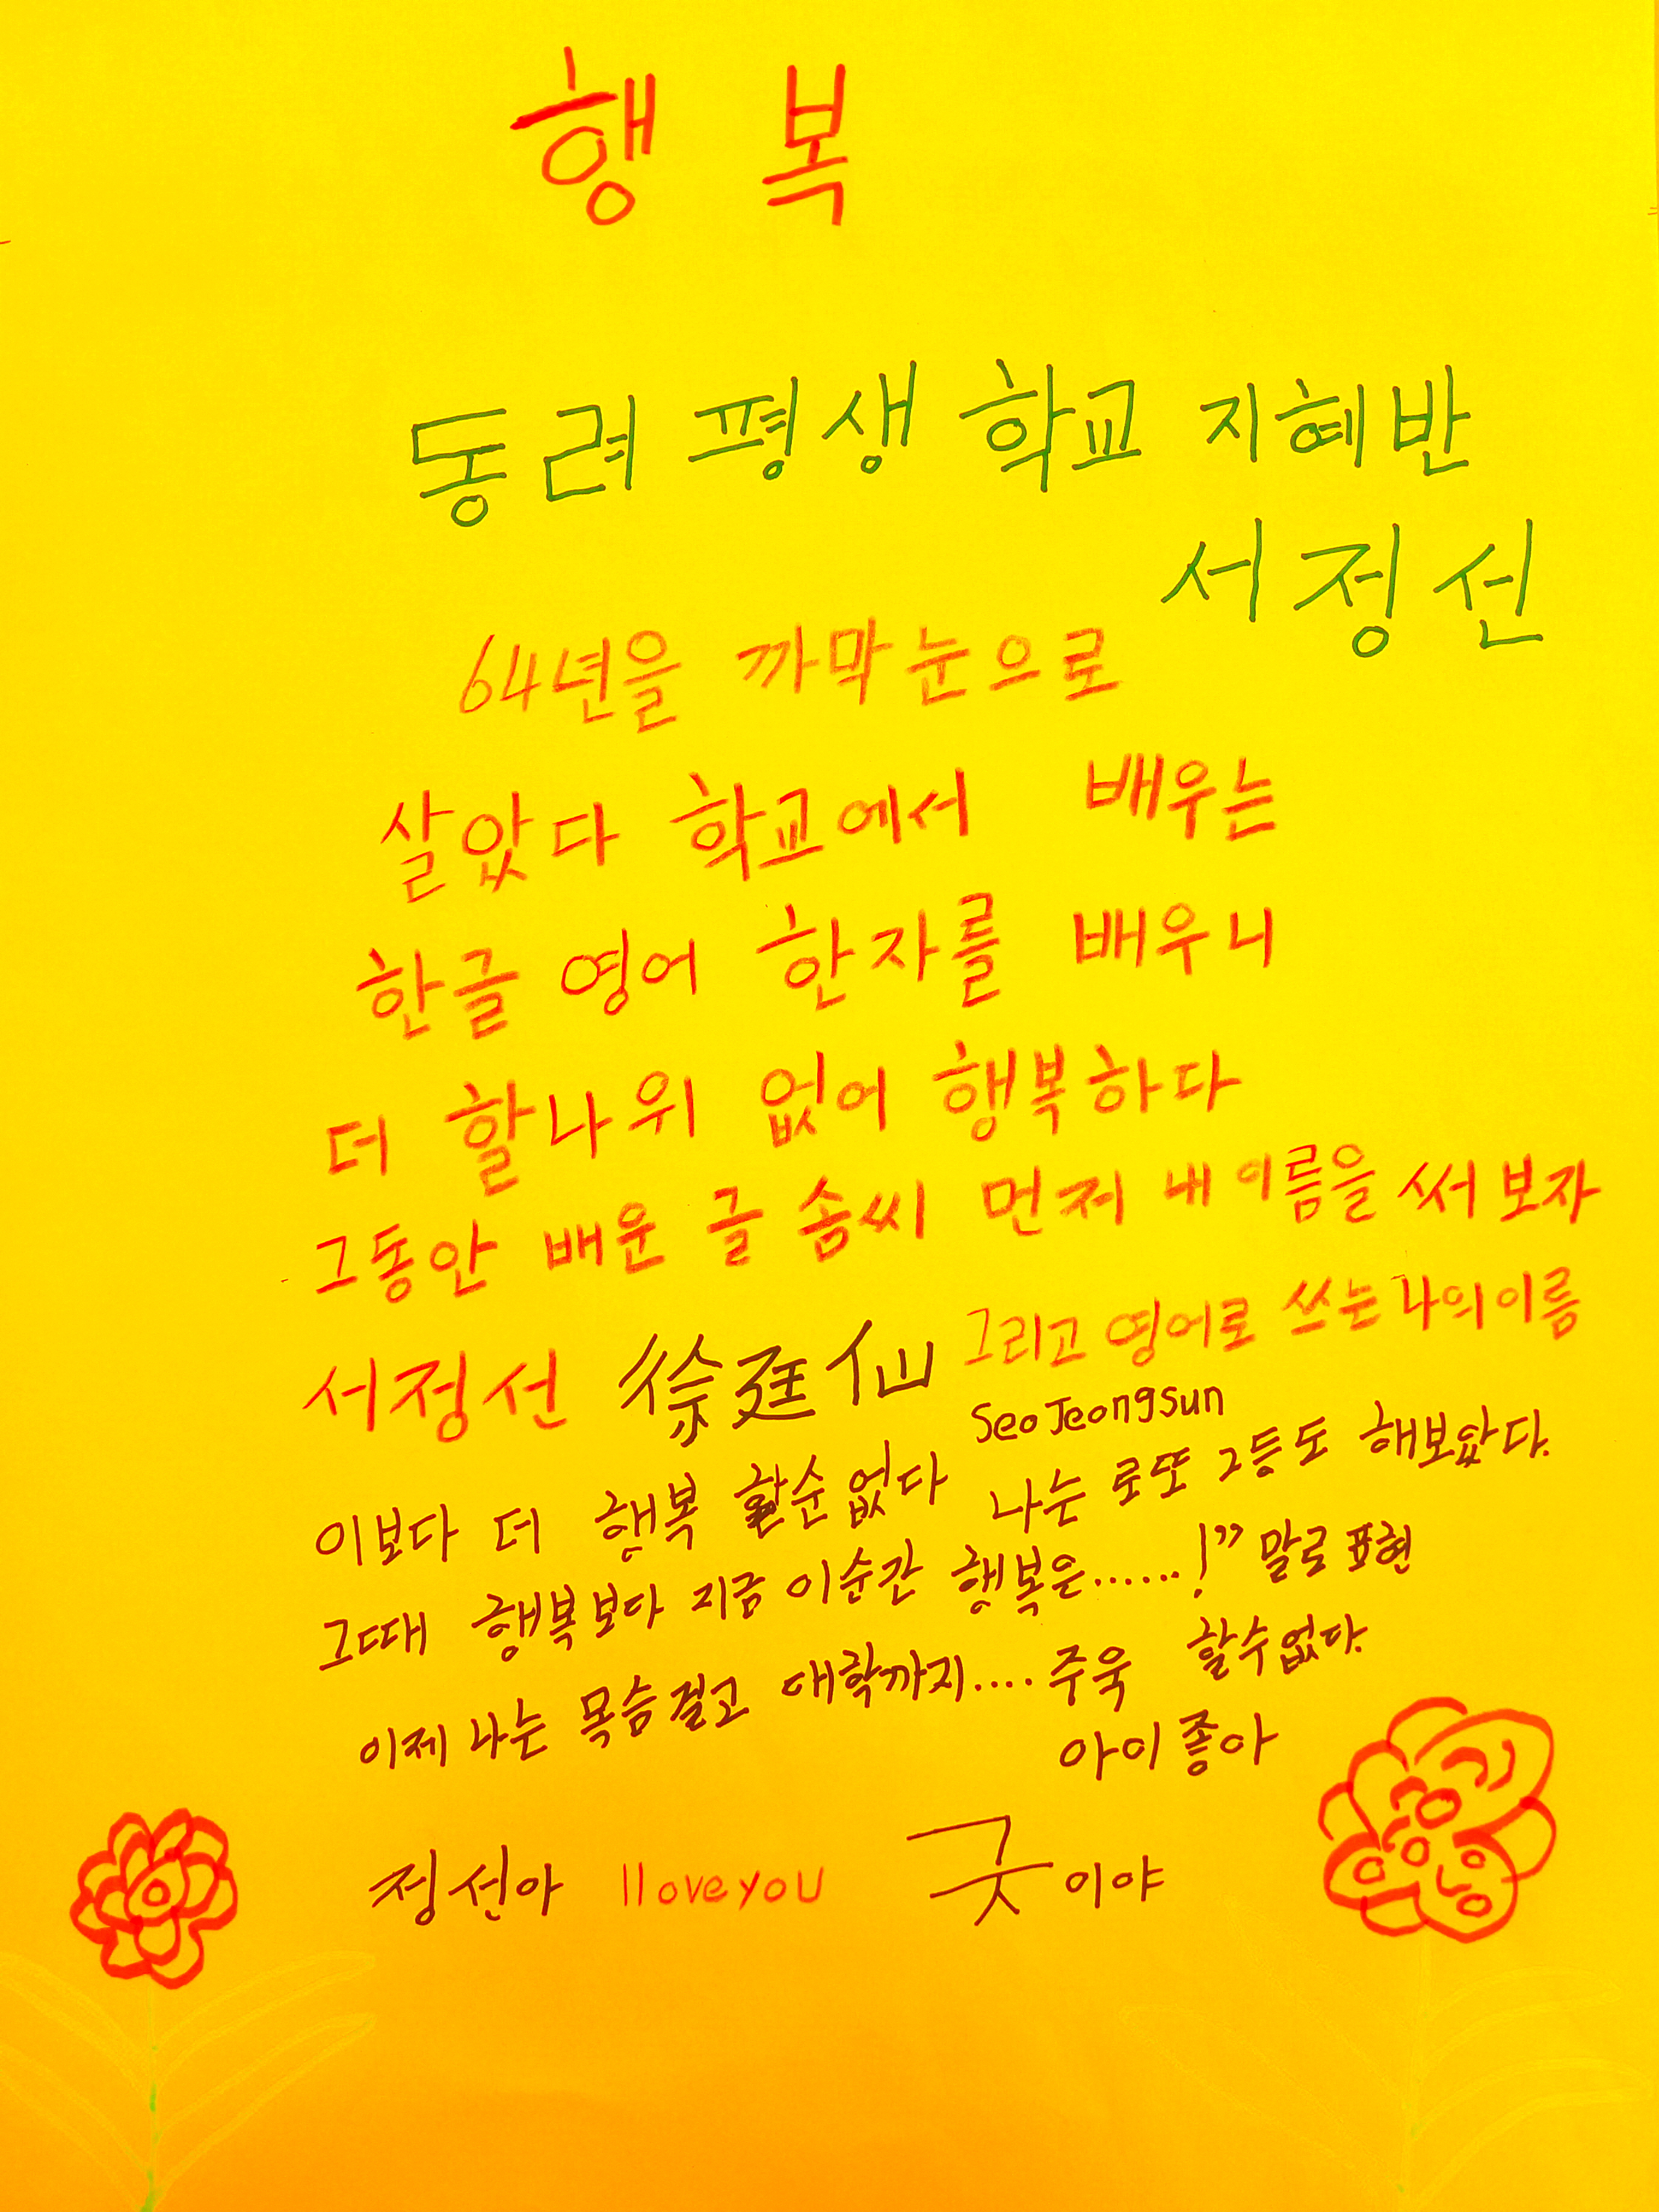 행 복
동려 평생 학교 지혜반
서정선
64년을 까막눈으로
살았다 학교에서 배우는
한글 영어 한자를 배우니
더 할나위 없어 행복하다
그동안 배운 글 솜씨 먼저 내 이름을 써 보자
서정선 徐廷仙 그리고 영어로 쓰는 나의이름
Seo Jeongsun
이보다 더 행복 할순없다 나는 로또 2등도 해보았다.
그때 행복보다 지금 이순간 행복은......!” 말로 표현
할수없다.
이제 나는 목숨걸고 대학까지.... 주욱
아이좋아
정선아 I love you 굿이야